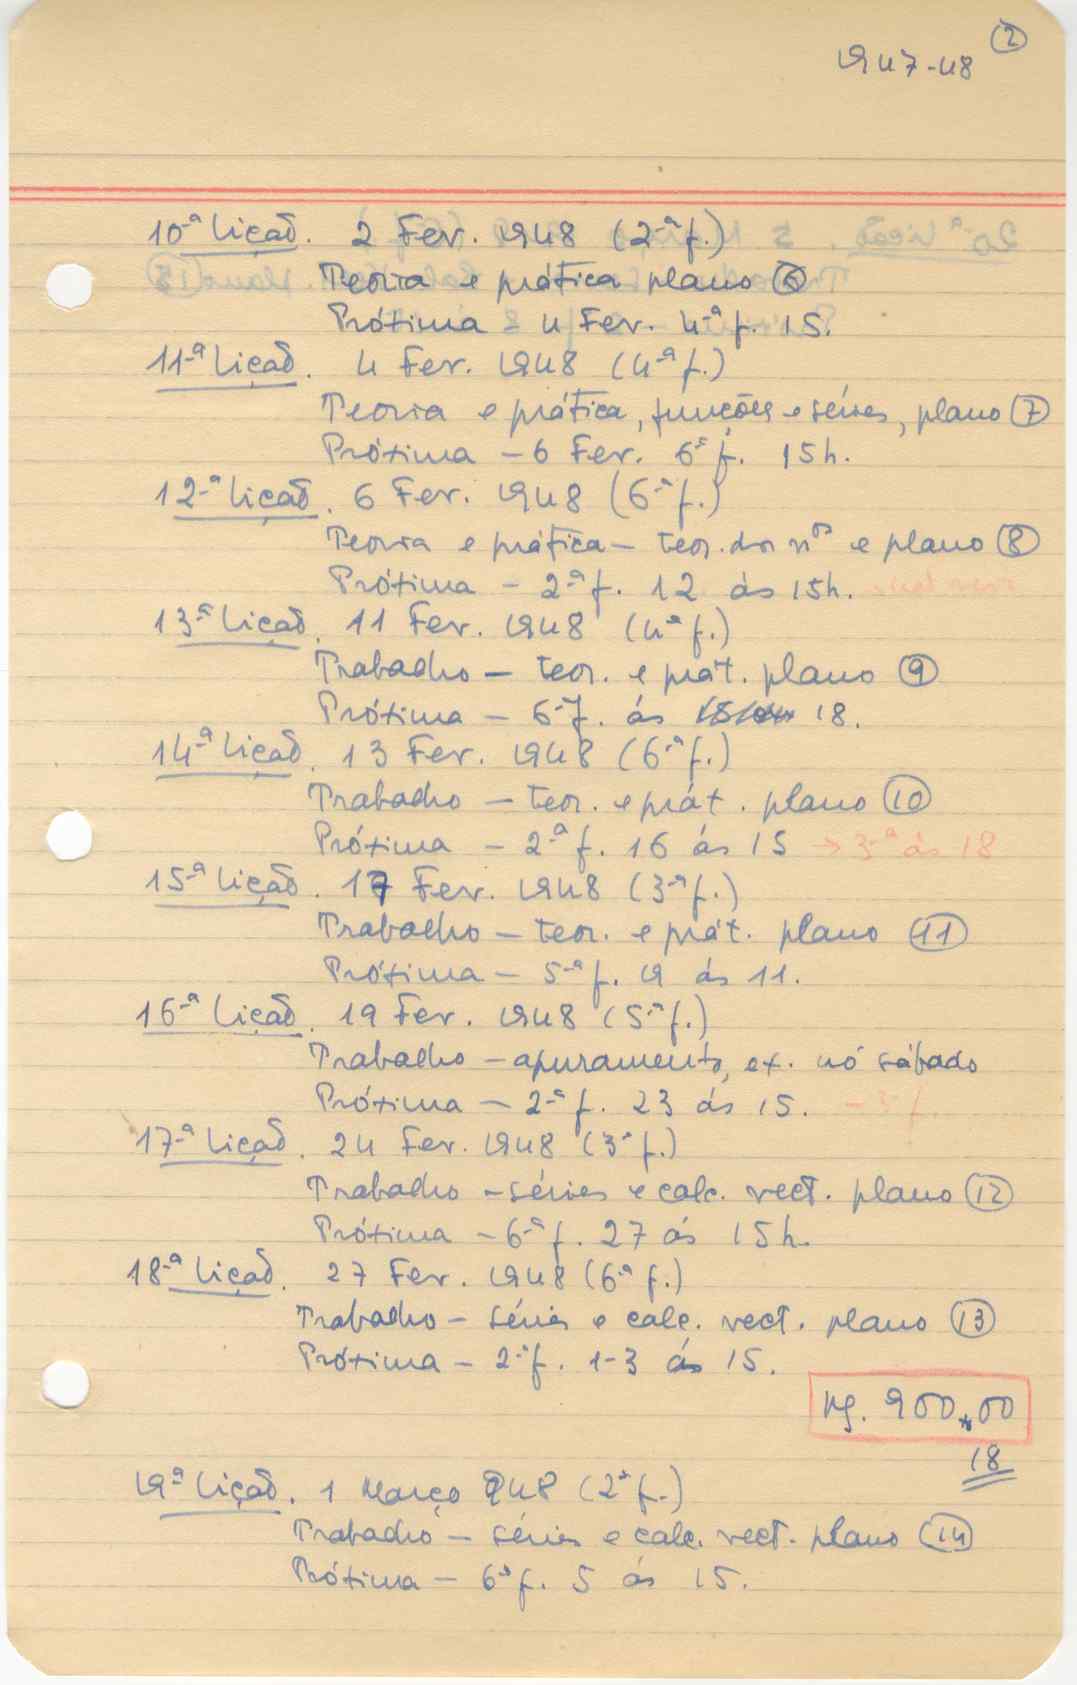 1947-48 2
10-ª Lição. 2 Fev. 1948 (2-ª f.)
Teoria e prática plano 6
Próxima 4 Fev. 4-ª f. 15.
11-ª Lição. 4 Fev. 1948 (4-ª f.)
Teoria e prática, funções e séries, plano 7
Próxima - 6 Fev. 6ª f. 15h.
12-ª Lição. 6 Fev. 1948 (6-ª f.)
Teoria e prática - teor. dos nos e plano 8
Próxima - 2-ª f. 12 ás 15h.
13-ª Lição. 11 Fev. 1948 (4-ª f.)
Trabalho - teor. e prát. plano 9
Próxima - 6-f. ás 18.
14-ª Lição. 13 Fev. 1948 (6-ª f.)
Trabalho - teor. e prát. plano 10
Próxima - 2-ª f. 16 ás 15 → 3-ª ás 18
15-ª Lição. 17 Fev. 1948 (3-ª f.)
Trabalho - teor. e prát. plano 11
Próxima - 5-ª f. 19 ás 11.
16-ª Lição. 19 Fev. 1948 (5-ª f.)
Trabalho - apuramento, ex. nó sábado
Próxima - 2-ª f. 23 ás 15. - 3ª f.
17-ª Lição. 24 Fev. 1948 (3ª f.)
Trabalho - séries e calc. vect. plano 12
Próxima - 6-ª f. 27 ás 15h.
18-ª Lição. 27 Fev. 1948 (6ª f.)
Trabalho - séries e calc. vect. plano 13
Próxima - 2-ª f. 1-3 ás 15.
Pg. 900,00
18
19ª Lição. 1 Março 948 (2ª f.)
Trabalho - séries e calc. vect. plano 14
Próxima - 6ª f. 5 ás 15.